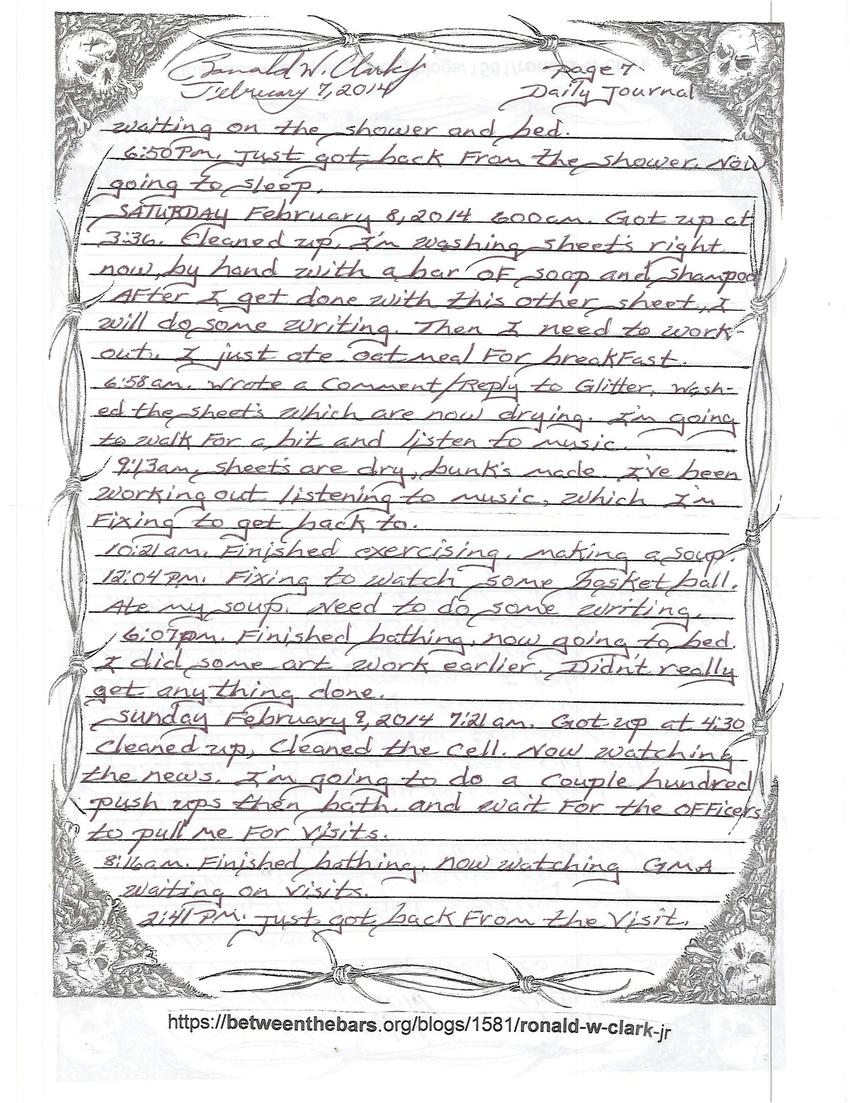 Ronald W. Clark Jr page 7
February 7, 2014 Daily Journal
waiting on the shower and bed.
6:50PM. Just got back From the shower. Now
going to sleep.
SATURDAY February 8, 2014 600am. Got up at
3:36. Cleaned up. I'm washing sheet's right
now, by hand with a bar oF soap and shampoo
AFter I get done with this other sheet, I
will do some writing. Then I need to work-
out. I just ate oatmeal For breakFast.
6:58am. Wrote a Comment/Reply to Glitter, Wash-
ed the sheet's which are now drying. I'm going
to walk For a bit and listen to music.
9:13am. Sheets are dry, bunk's made. I've been
working out listening to music, which I'm
Fixing to get back to.
10:21am. Finished exercising, making a soup.
12:04PM. Fixing to watch some basket ball.
Ate my soup. Need to do some writing.
6:07pm. Finished bathing, now going to bed.
I did some art work earlier. Didn't really
get anything done.
Sunday February 9, 2014 7:21am. Got up at 4:30
Cleaned up, Cleaned the Cell. Now watching
the news. I'm going to do a Couple hundred
push ups then bath. and wait For the OFFicers
to pull me For Visits.
8:16am. Finished bathing, now watching GMA
waiting on Visits.
2:41PM. Just got back From the Visit.
https://betweenthebars.org/blogs/1581/ronald-w-clark-jr